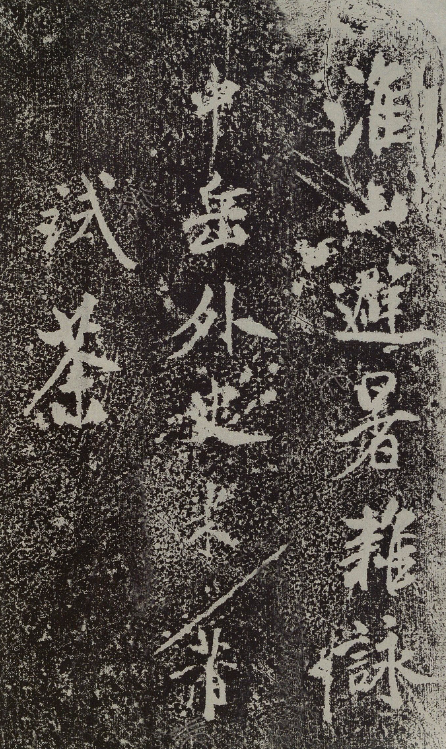 淮山避暑雜詠
中岳外史米芾
試茶